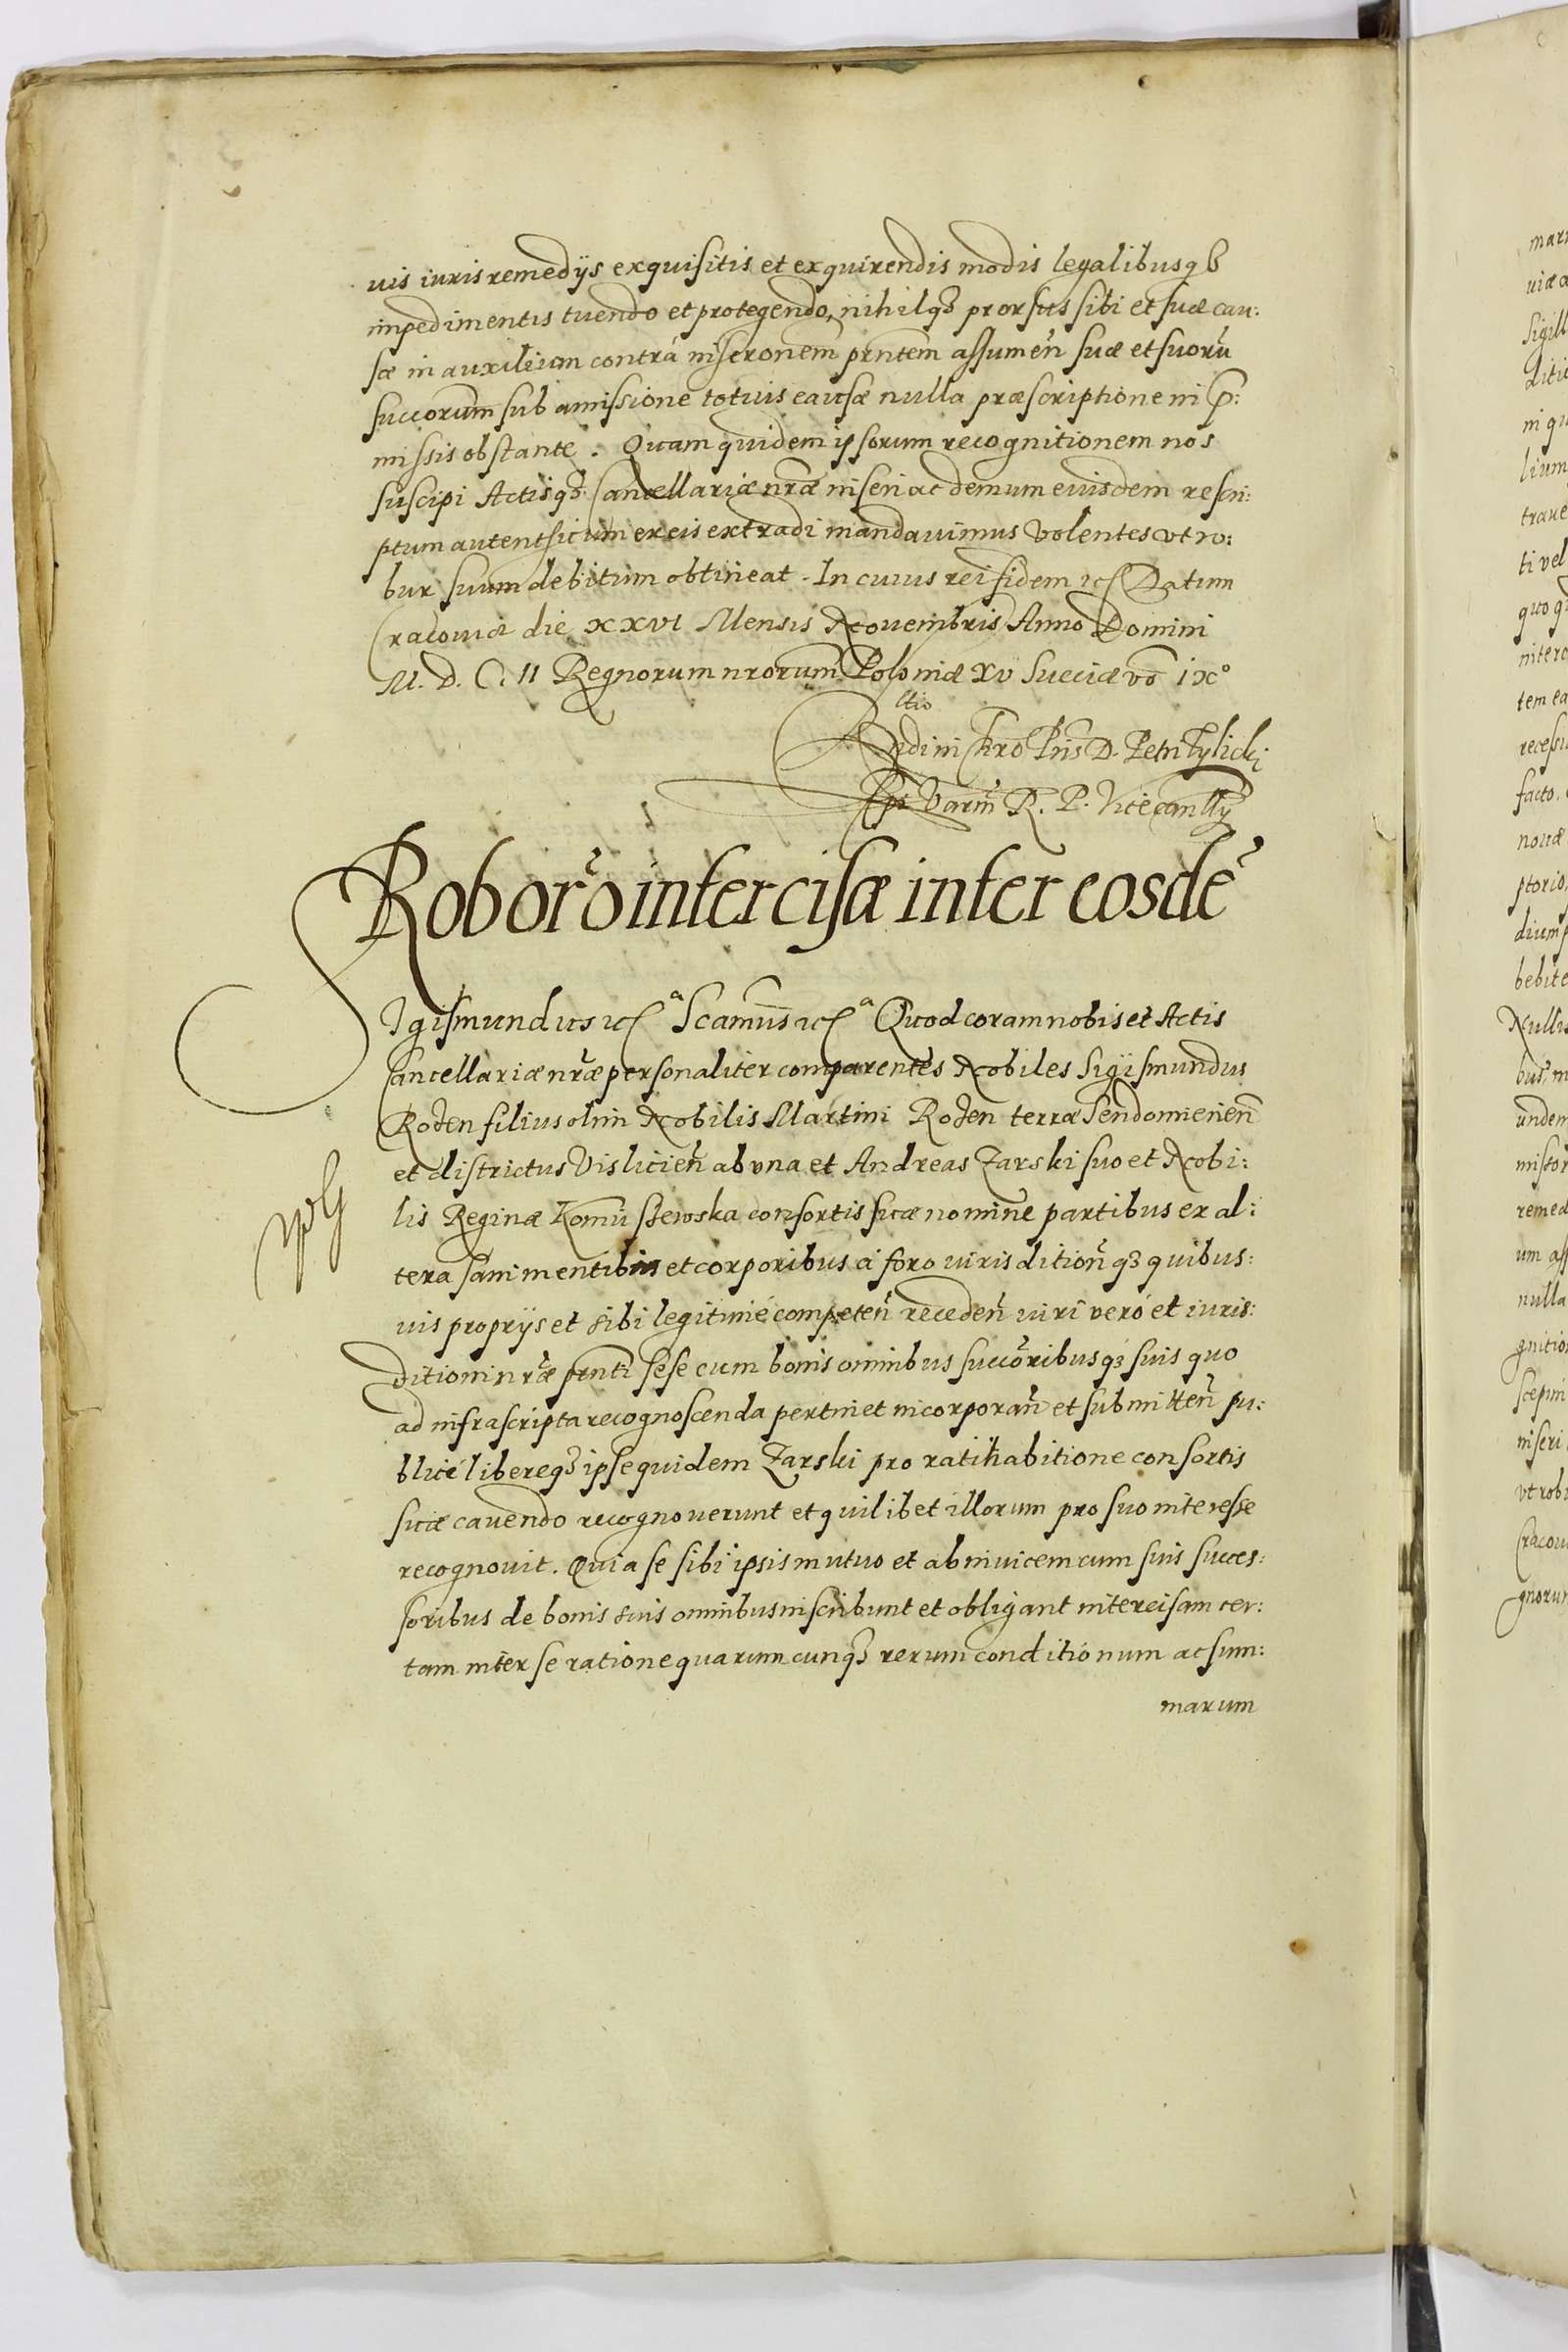 uis iuris remedijs exquisitis et exquirendis modis legalibusqȝ
impedimentis tuendo et protegendo, nihilqȝ prorsus sibi et suæ cau:
sæ in auxilium contrà inscronem prntem assumeñ suæ et suorũ
succorum sub amissione totius causæ nulla præscriptione in p̃:
missis obstante. Quam quidem ipsorum recognitionem nos
suscipi Actisqȝ Cancellariæ nræ inseri ac demum eiusdem rescri:
ptum autenthicum ex eis extradi mandauimus volentes vt ro:
bur suum debitum obtineat. In cuius rei fidem etc Datum
Cracouiæ die xxvi Mensis Nouembris Anno Domini
M. D. C. II Regnorum nrorum Poloniæ xv Sueciæ vo ixº
Rndi in Chro Pris D. Petri Tylicki
Epi Varm̃ R. P. Vicecanllÿ
Roborõ intercisæ inter eosdẽ
Sigismundus etc ª Scamus etc ª Quod coram nobis et Actis
Cancellariæ nræ personaliter comparentes Nobiles Sigismundus
Roden filius olim Nobilis Martini Roden terræ Sendomirieñ
et districtus Vislicieñ ab vna et Andreas Zarski suo et Nobi:
lis Reginæ Komūszewska consortis suæ nomine partibus ex al:
tera sani mentibus et corporibus à foro iurisditioñqȝ quibus:
uis proprijs et sibi legitimé competeñ recedeñ iuri veró et iuris:
ditioni nræ prnti sese cum bonis omnibus succoribusqȝ suis quo
ad infrascripta recognoscenda pertinet incorporañ et submitteñ pu:
blicé libereqȝ ipse quidem Zarski pro ratihabitione consortis
suæ cauendo recognouerunt et quilibet illorum pro suo interesse
recognouit. Quia se sibi ipsis mutuo et ab inuicem cum suis succes:
soribus de bonis suis omnibus inscribunt et obligant intercisam cer:
tam inter se ratione quarumcunqȝ rerum conditionum ac sum:
marum